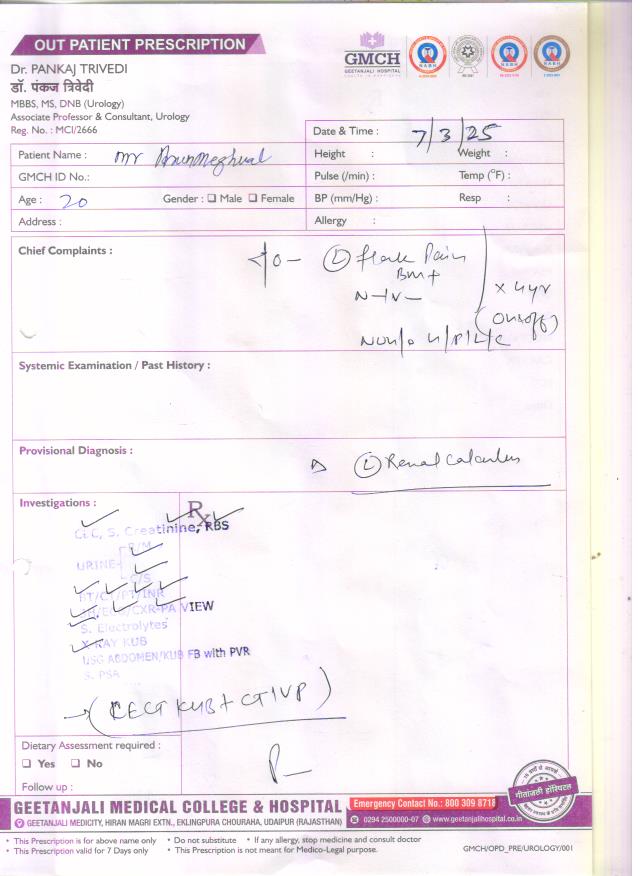 OUT PATIENT PRESCRIPTION
Dr. PANKAJ TRIVEDI
डॉ. पंकज त्रिवेदी
MBBS, MS, DNB (Urology)
Associate Professor & Consultant, Urology
Reg. No. : MCI/2666
GMCH
GEETANJALI HOSPITAL
Date & Time : 7/3/25
Patient Name : mr
Height : Weight :
GMCH ID No.:
Pulse (/min) : Temp (°F) :
Age : 20 Gender : Male Female
BP (mm/Hg) : Resp :
Address :
Allergy :
Chief Complaints :
(L) flank Pain
x 4yr
(on & off)
Systemic Examination / Past History :
Provisional Diagnosis :
(L) Renal Calculus
Investigations :
Rx
S. Creatinine, RBS
URINE R/M
C/S
BT/CT/PT/INR
CXR-PA VIEW
S. Electrolytes
X-RAY KUB
USG ABDOMEN/KUB FB with PVR
S. PSA
(CECT KUB + CT IVP)
Dietary Assessment required :
Yes No
Follow up :
गीतांजली हॉस्पिटल
GEETANJALI MEDICAL COLLEGE & HOSPITAL
Emergency Contact No.: 800 309 8718
GEETANJALI MEDICITY, HIRAN MAGRI EXTN., EKLINGPURA CHOURAHA, UDAIPUR (RAJASTHAN)
0294 2500000-07 www.geetanjalihospital.co.in
• This Prescription is for above name only • Do not substitute • If any allergy, stop medicine and consult doctor
• This Prescription valid for 7 Days only • This Prescription is not meant for Medico-Legal purpose.
GMCH/OPD_PRE/UROLOGY/001